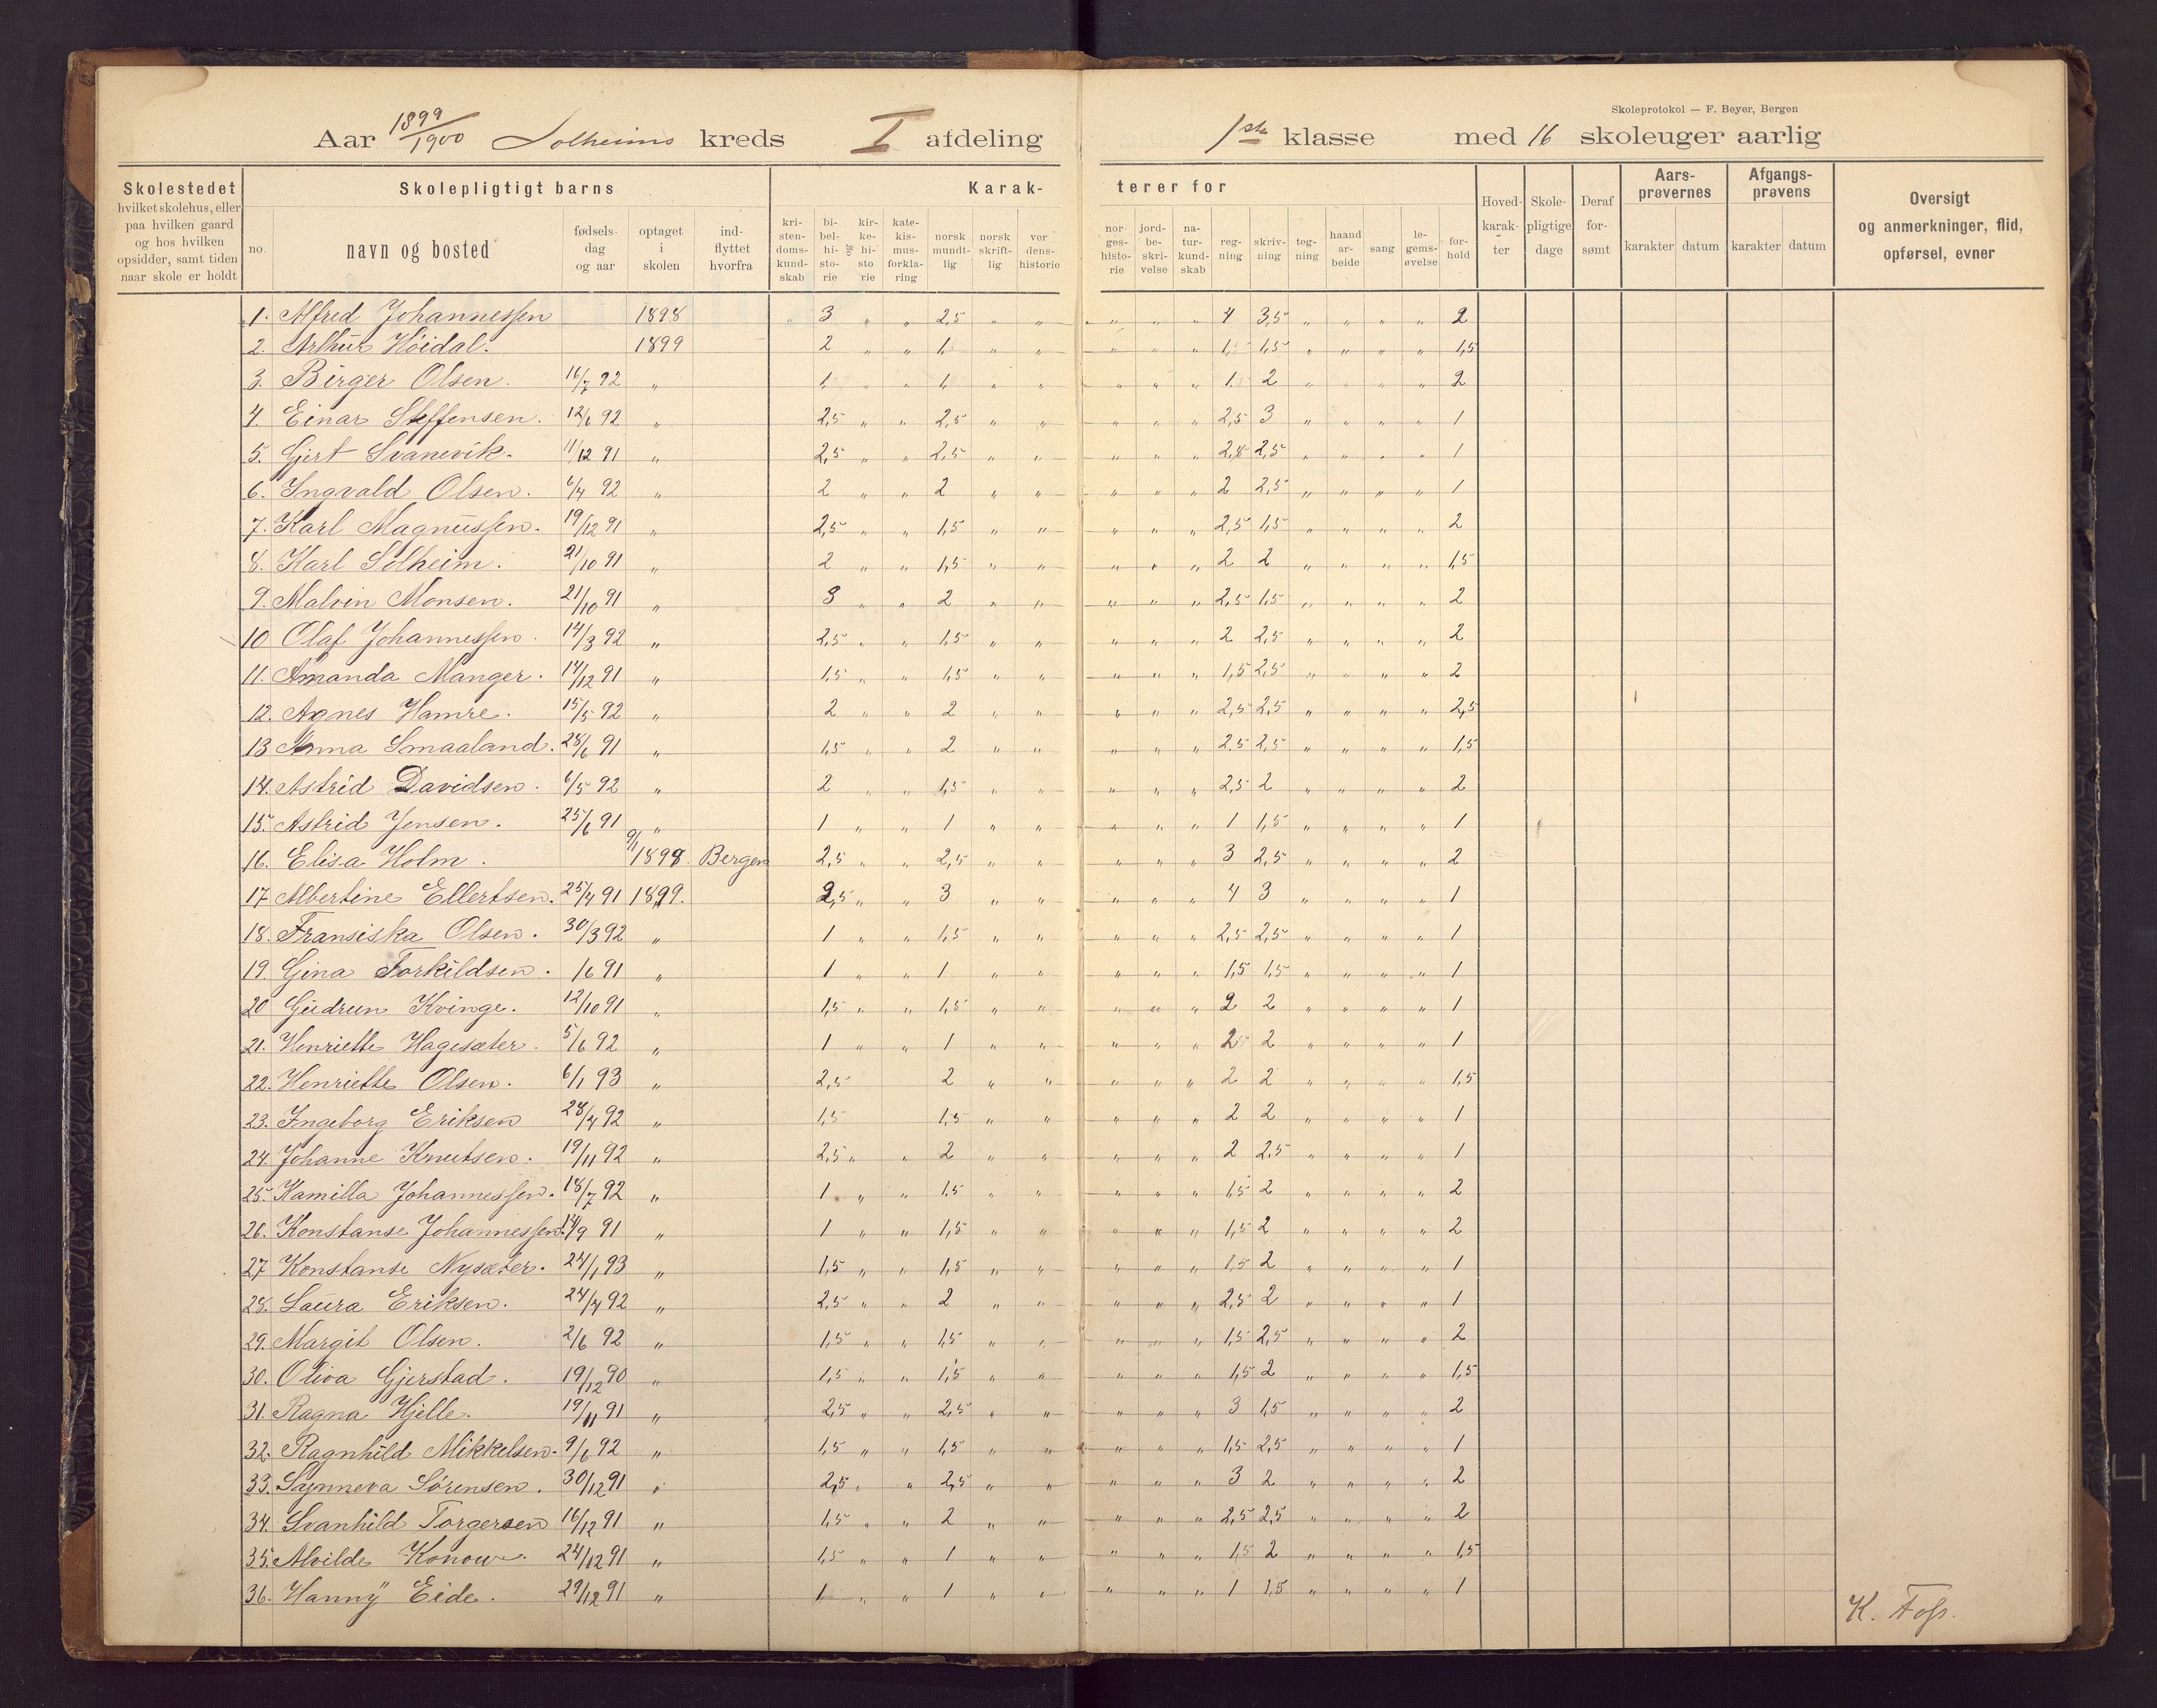 Skoleprotokol — F. Beyer, Bergen
Aar 1899/1900 Solheims kreds I afdeling 1ste klasse med 16 skoleuger aarlig
Skolestedet hvilket skolehus, eller paa hvilken gaard og hos hvilken opsidder, samt tiden naar skole er holdt
Skolepligtigt barns
no. navn og bosted fødsels- dag og aar optaget i skolen ind- flyttet hvorfra
Karak- terer for
kri- sten- doms- kund- skab bi- bel- hi- sto- rie og kir- ke- hi- sto rie kate- kis- mus- forkla- ring norsk mundt- lig norsk skrift- lig ver dens- historie
nor- ges- histo- rie jord- be- skri- velse na- tur- kund- skab reg- ning skriv- ning teg- ning haand ar- beide sang le- gems- øvelse for- hold
Hoved- karak- ter Skole- pligtige dage Deraf for- sømt
Aars- prøvernes karakter datum Afgangs- prøvens karakter datum
Oversigt og anmerkninger, flid, opførsel, evner
1. Alfred Johannessen 1898 " 3 " " 2,5 " " " " " 4 3,5 " " " " 2
2. Arthur Höidal. 1899 2 " " 1 " " " " " 1,5 1,5 " " " " 1,5
3. Birger Olsen. 16/7 92 " 1 " " 1 " " " " " 1 2 " " " " 2
4. Einar Steffensen. 12/6 92 " 2,5 " " 2,5 " " " " " 2,5 3 " " " " 1
5. Gjert Svanevik. 11/12 91 " 2,5 " " 2,5 " " " " " 2,5 2,5 " " " " 1
6. Ingvald Olsen. 6/4 92 " 2 " " 2 " " " " " 2 2,5 " " " " 1
7. Karl Magnussen. 19/12 91 " 2,5 " " 1,5 " " " " " 2,5 1,5 " " " " 2
8. Karl Solheim. 21/10 91 " 2 " " 1,5 " " " " " 2 2 " " " " 1,5
9. Malvin Monsen. 21/10 91 " 3 " " 2 " " " " " 2,5 1,5 " " " " 2
10 Olaf Johannessen. 14/3 92 " 2,5 " " 1,5 " " " " " 2 2,5 " " " " 2
11. Amanda Manger. 14/12 91 " 1,5 " " 1,5 " " " " " 1,5 2,5 " " " " 2
12. Agnes Hamre. 15/5 92 " 2 " " 2 " " " " " 2,5 2,5 " " " " 2,5
13 Anna Smaaland. 28/6 91 " 1,5 " " 2 " " " " " 2.5 2,5 " " " " 1,5
14. Astrid Davidsen. 6/5 92 " 2 " " 1,5 " " " " " 2,5 2 " " " " 2
15. Astrid Jensen. 25/6 91 " 1 " " 1 " " " " " 1 1,5 " " " " 1
16. Elisa Holm. 9/1 1898. Bergen 2,5 " " 2,5 " " " " " 3 2,5 " " " " 2
17 Albertine Ellertsen. 25/4 91 1899. 2,5 " " 3 " " " " " 4 3 " " " " 1
18. Fransiska Olsen. 30/3 92 " 1 " " 1,5 " " " " " 2,5 2,5 " " " " 1
19. Gina Torkildsen. 16 91 " 1 " " 1 " " " " " 1,5 1,5 " " " " 1
20 Gudrun Kvinge. 12/10 91 " 1,5 " " 1,5 " " " " " 2 2 " " " " 1
21. Henriette Hagesæter. 5/6 92 " 1 " " 1 " " " " " 2 2 " " " " 1
22. Henriette Olsen. 6/1 93 " 2,5 2 " " " " " 2 2 " " " " 1,5
23. Ingeborg Eriksen 28/4 92 " 1,5 1,5 " " " " " 2 2 " " " " 1
24. Johanne Knutsen. 19/11 92 " 2,5 " " 2 " " " " " 2 2,5 " " " " 1
25. Kamilla Johannessen. 18/7 92 " 1 " " 1,5 " " " " " 1,5 2 " " " " 2
26. Konstanse Johannessen. 14/9 91 " 1 " " 1,5 " " " " " 1,5 2 " " " " 2
27 Konstanse Nysæter. 24/1 93 " 1,5 " " 1,5 " " " " " 1,5 2 " " " " 1
28. Laura Eriksen. 24/4 92 " 2,5 " " 2 " " " " " 2,5 2 " " " " 1
29. Margit Olsen. 2/6 92 " 1,5 " " 1,5 " " " " " 1,5 2,5 " " " " 2
30. Oliva Gjerstad. 19/12 90 " 1,5 " " 1,5 " " " " " 1,5 2 " " " " 1,5
31. Ragna Hjelle. 19/11 91 " 2,5 " " 2,5 " " " " " 3 1,5 " " " " 2
32. Ragnhild Mikkelsen. 9/6 92 " 1,5 " " 1,5 " " " " " 1,5 2,5 " " " " 1
33. Synneva Sörensen. 30/12 91 " 2,5 " " 2,5 " " " " " 3 2 " " " " 2
34. Svanhild Torgersen 16/12 91 " 1,5 " " 2 " " " " " 2,5 2,5 " " " " 2
35. Alvilde Konow. 24/12 91 " 1,5 " " 1 " " " " " 1,5 2 " " " " 1,5
36. Hanny Eide. 29/12 91 " 1 " " 1 " " " " " 1 1,5 " " " " 1
K. Foss.